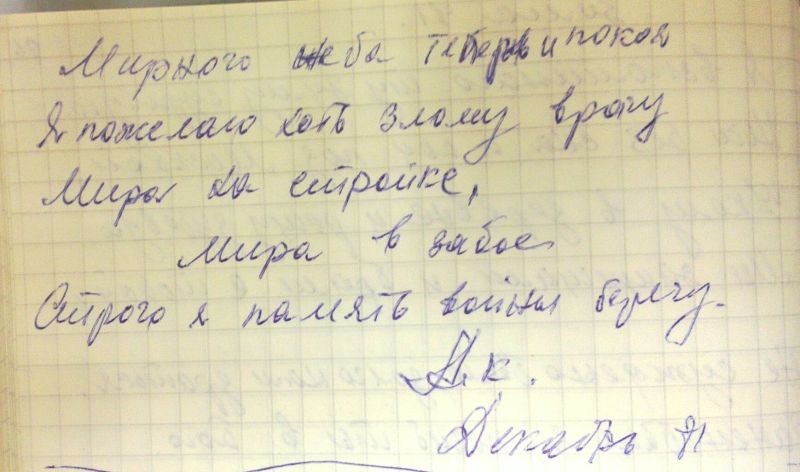 Мирного неба теперь и покоя
Я пожелаю хоть злому врагу
Мира на стройке,
Мира в забое
Строго я память войны берегу.
А.К.
Декабрь 81